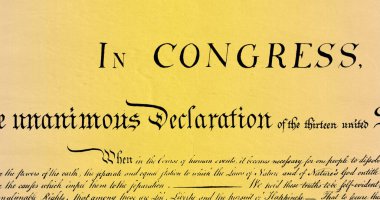 IN CONGRESS,
e unanimous Declaration of the thirteen united S
When in the Course of human events, it becomes necessary for one people to dissol
the powers of the earth, the separate and equal station to which the Laws of Nature and of Nature's God entitl
the causes which impel them to the separation. — We hold these truths to be self-evident
unalienable Rights, that among these are Life, Liberty and the pursuit of Happiness. — That to secure the